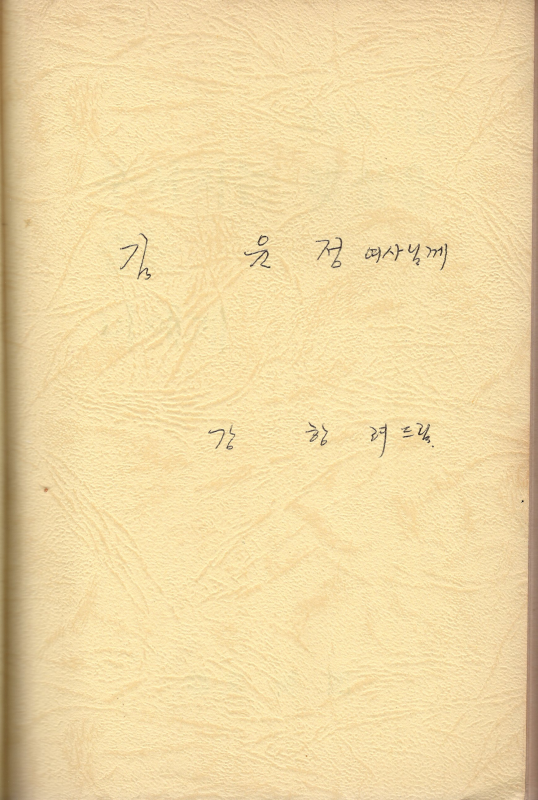 김 윤 정 여사님께
강 항 려 드림.